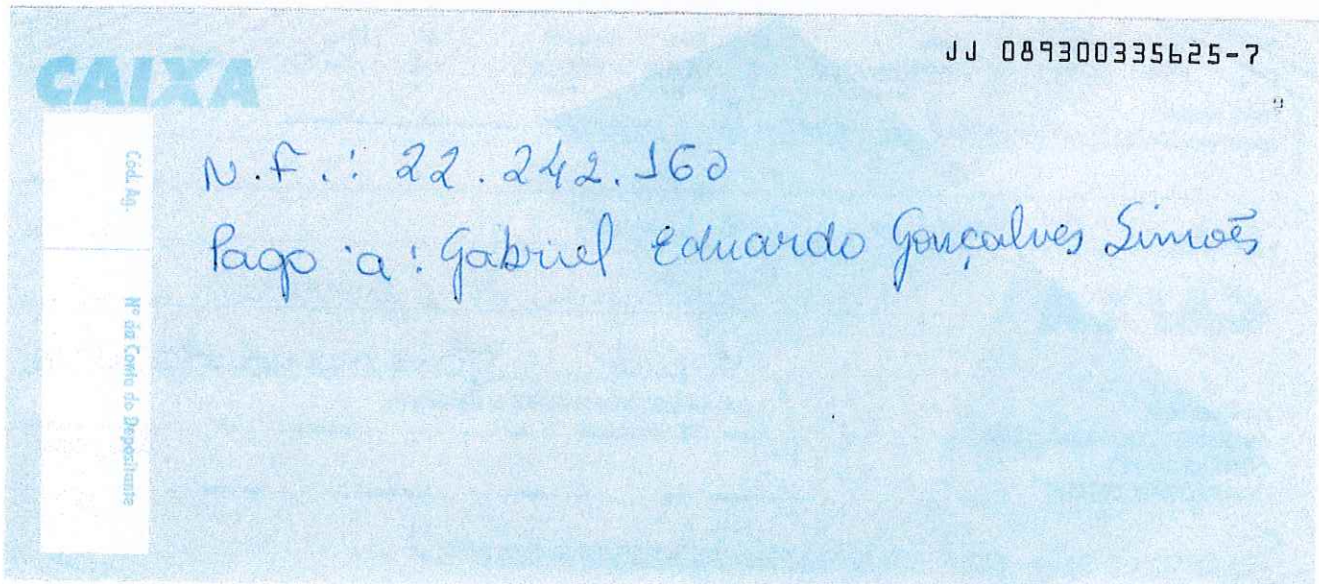 JJ 089300335625-7
CAIXA
Cód. Ag.
Nº da Conta do Depositante
N.F.: 22.242.160
Pago a: Gabriel Eduardo Gonçalves Simões